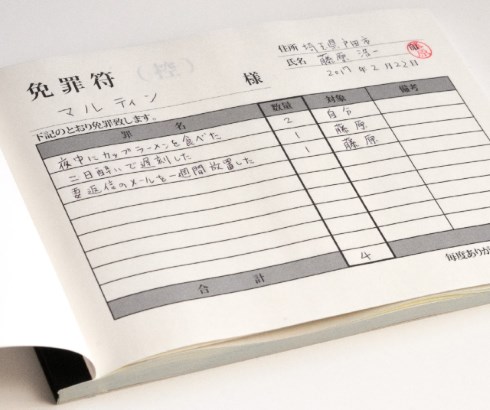 免罪符 (控)
マルティン 様
住所 埼玉県戸田市
氏名 藤原浩一
2017年2月22日
下記のとおり免罪致します。
罪名 数量 対象 備考
夜中にカップラーメンを食べた 2 自分
二日酔いで遅刻した 1 藤原
要返信のメールを一週間放置した 1 藤原
合計 4
毎度あり